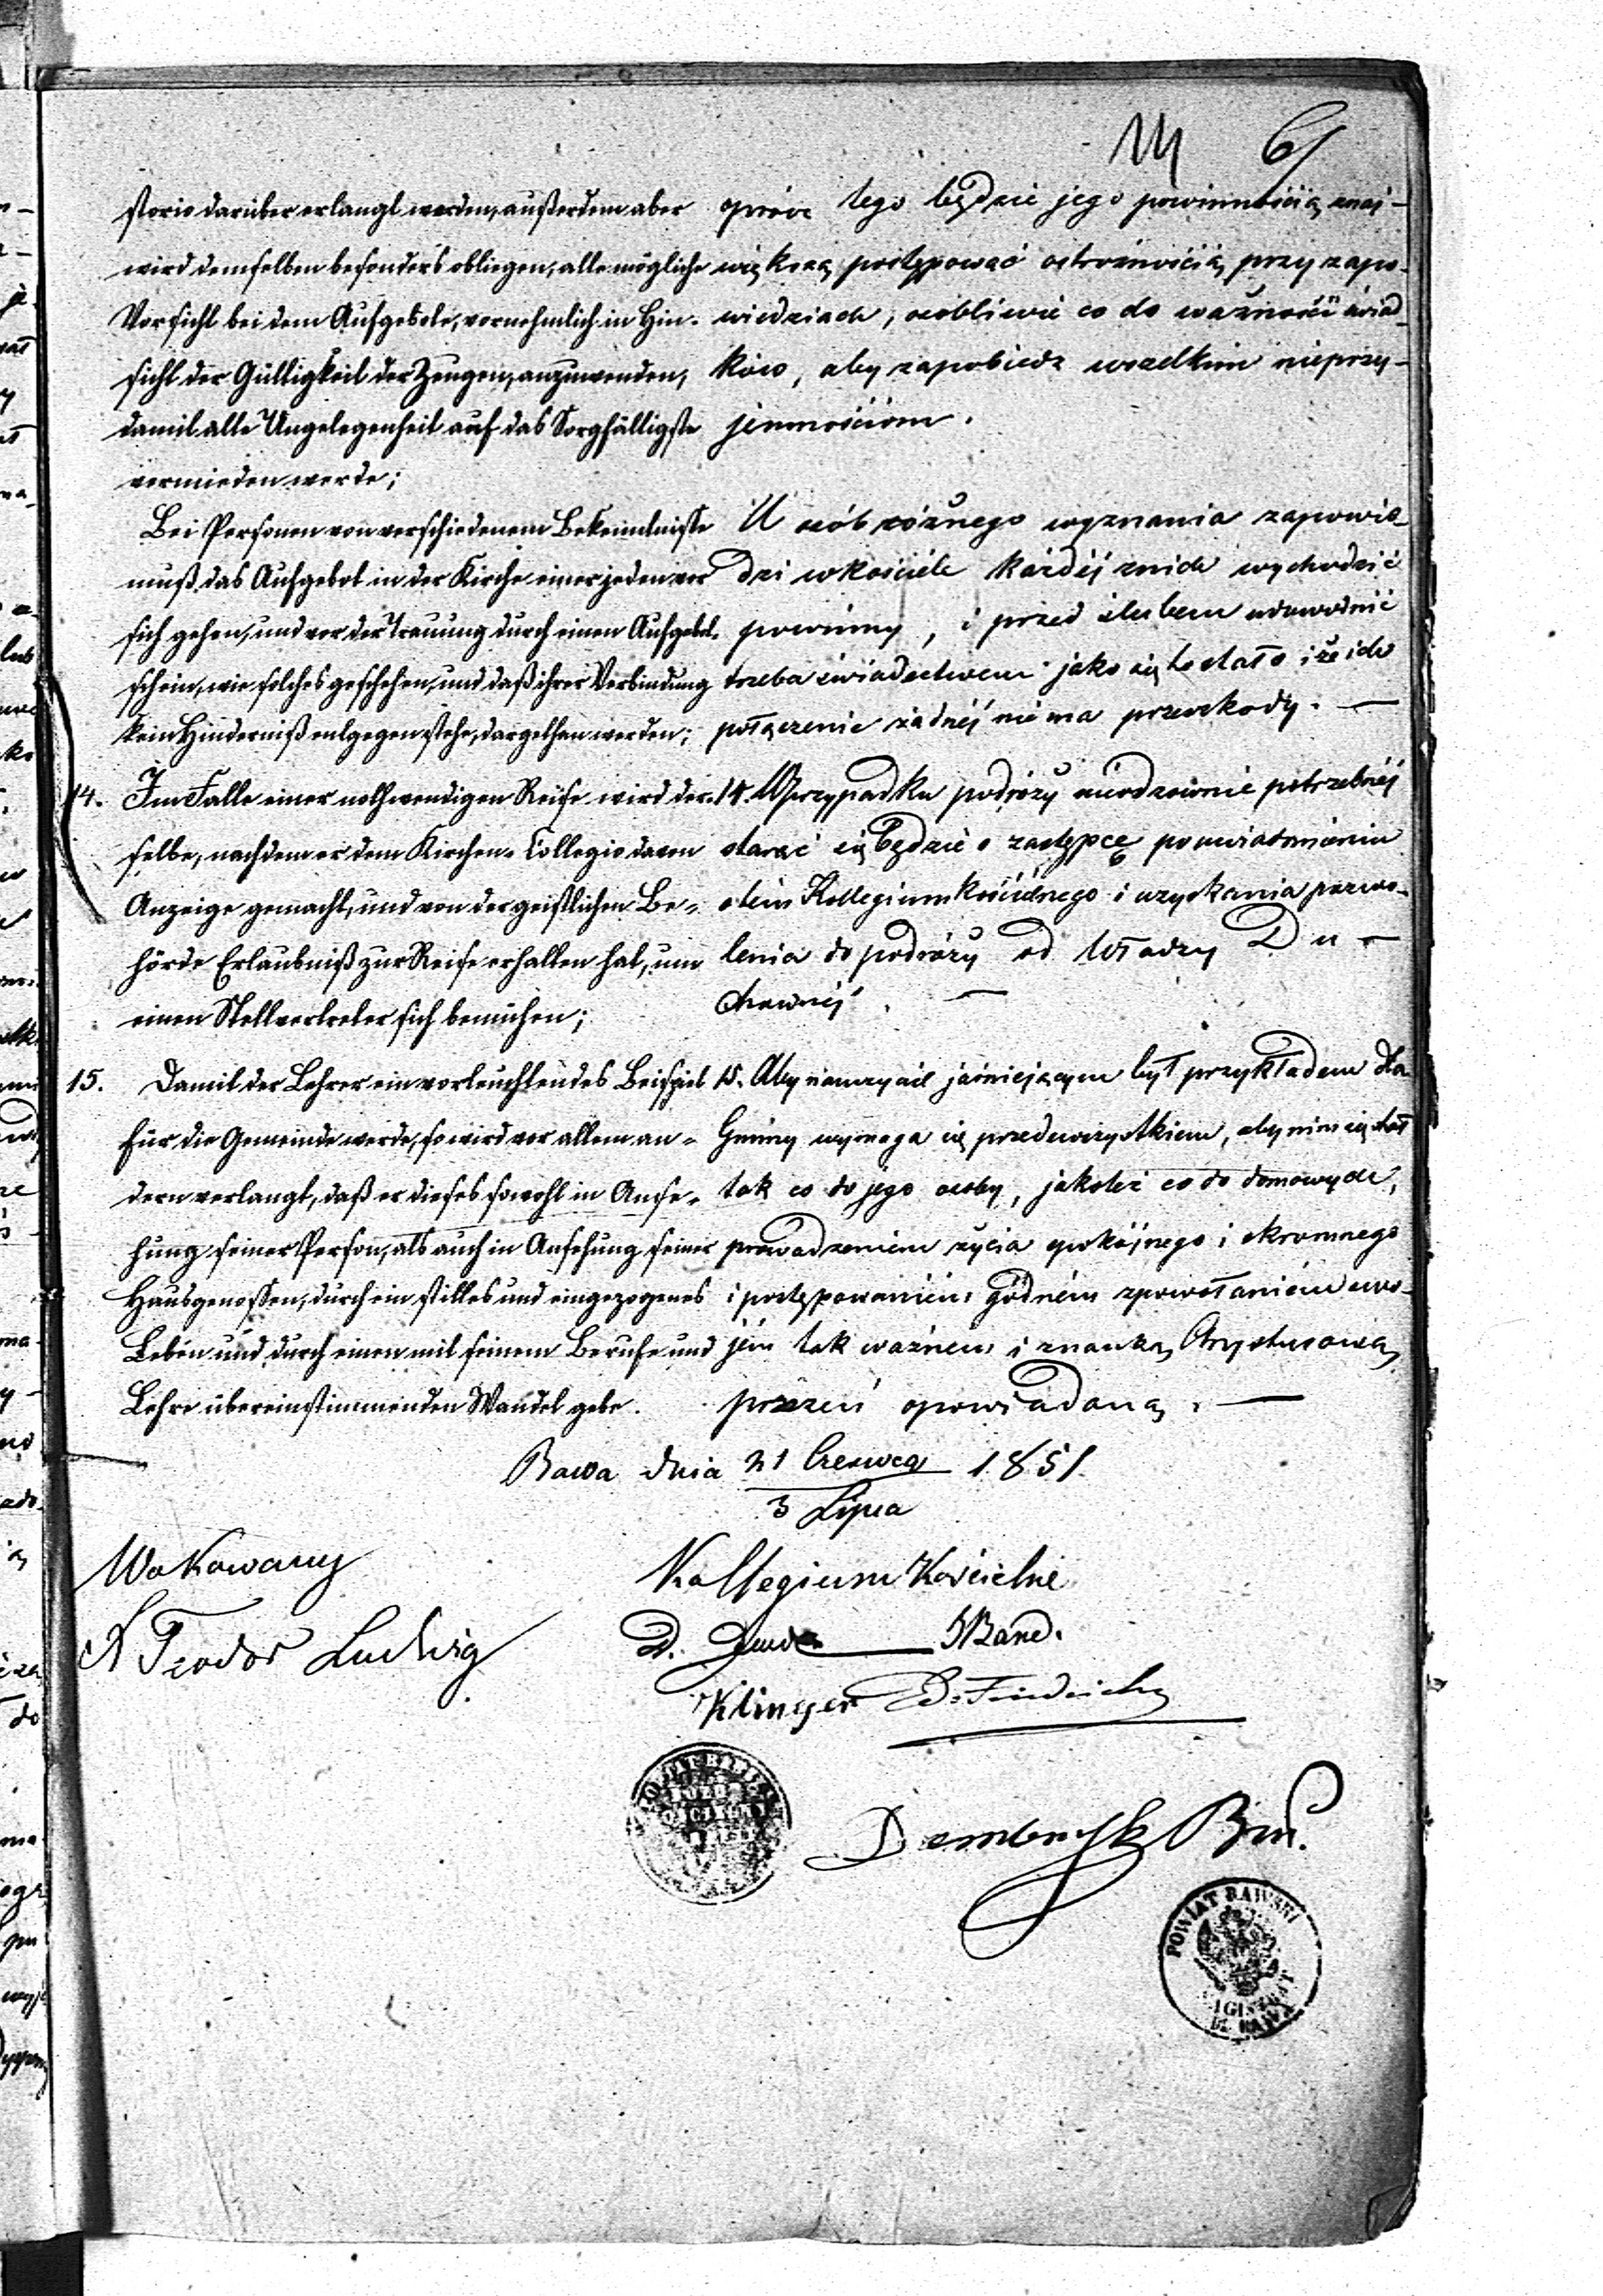 14 61
storio darüber erlangt werden, außerdem aber
wird demselben besonders obliegen, alle mögliche
Vorsicht bei dem Aufgebote, vornehmlich in Hin-
sicht der Gültigkeit der Zeugen, anzuwenden,
damit alle Ungelegenheit auf das Sorgfältigste
vermieden werde;
Bei Personen von verschiedenem Bekenntnisse
muß das Aufgebot in der Kirche einer jeden vor
sich gehen, und vor der Trauung durch einen Aufgebot-
schein, wie solches geschehen, und daß ihrer Verbindung
kein Hinderniß entgegen stehe, dargethan werden;
14. Im Falle einer nothwendigen Reise wird der-
selbe, nachdem er dem Kirchen-Collegio davon
Anzeige gemacht, und von der geistlichen Be-
hörde Erlaubniß zur Reise erhalten hat, um
einen Stellvertreter sich bemühen;
15. Damit der Lehrer ein vorleuchtendes Beispiel
für die Gemeinde werde, so wird vor allem an-
dern verlangt, daß er dieses sowohl in Anse-
hung seiner Person, als auch in Ansehung seiner
Hausgenossen, durch ein stilles und eingezogenes
Leben und durch einen mit seinem Berufe und
Lehre übereinstimmenden Wandel gebe.
oprócz tego będzie jego powinnością znaj-
większą postępować ostrożnością przy zapo-
wiedziach, osobliwie co do ważności świad-
ków, aby zapobiedz wszelkim nieprzy-
jemnościom.
U osób różnego wyznania zapowie-
dzi w kościele każdéj znich wychodzić
powinny, i przed ślubem udowodnić
trzeba świadectwem jako się to stało i że ich
połączenie żadnéj niema przeszkody. —
14. W przypadku podróży nieodzownie potrzebnéj
starać się będzie o zastępcę po uwiadomieniu
o tém Kollegium kościelnego i uzyskania pozwo-
lenia do podróży od Władzy Du-
chownéj. —
15. Aby nauczyciel jaśniejącym był przykładem dla
Gminy wymaga się przedewszystkiem, aby nim się stał
tak co do jego osoby, jakoteż co do domowych,
prowadzeniem życia spokójnego i skromnego
i postępowaniém godném zpowołaniém swo-
jém tak ważném i znauką Chrystusową
przezeń opowiadaną. —
Rawa dnia 21 Czerwca 1851.
3 Lipca
Wokowany
X Teodor Ludwig
Kollegium Kościelne
D.
Klinger D. Friedrich
POWIAT RAWSKI
MAGISTRAT
M. RAWA